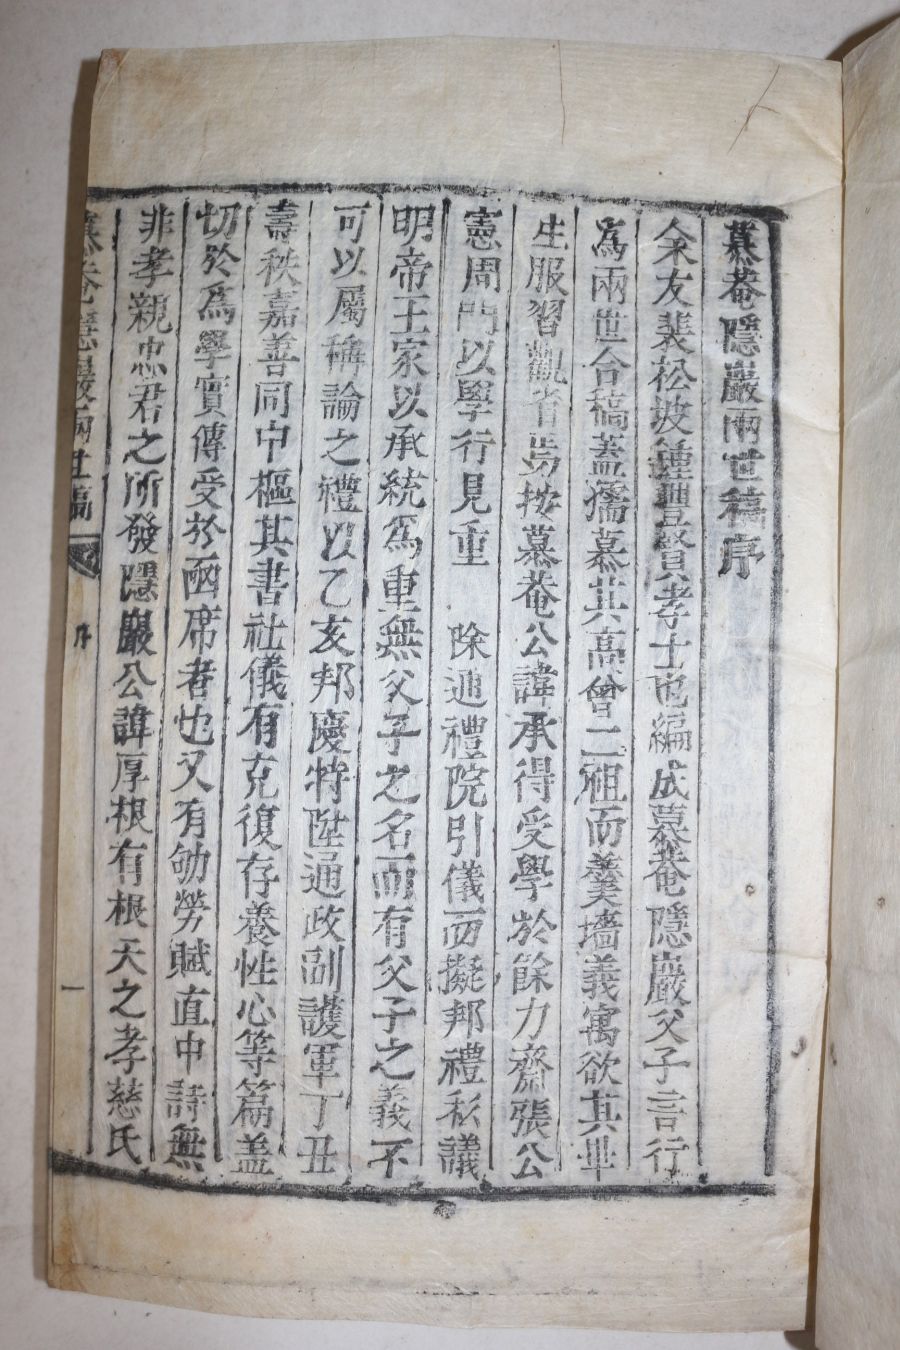 慕菴隱巖兩世稿序
余友裴松坡鍾豐賢孝士也編成慕菴隱巖父子言行
爲兩世合稿蓋孺慕其高曾二祖而羹墻義寓欲其畢
生服習觀省焉按慕菴公諱承得受學於餘力齋張公
憲周門以學行見重 除通禮院引儀而擬邦禮私議
明帝王家以承統爲重無父子之名而有父子之義不
可以屬稱論之禮以乙亥邦慶特陞通政副護軍丁丑
壽秩嘉善同中樞其書社儀有克復存養性心等篇蓋
切於爲學實傳受於函席者也又有劬勞賦直中詩無
非孝親忠君之所發隱巖公諱厚根有根天之孝慈氏
慕菴隱巖兩世稿 序 一